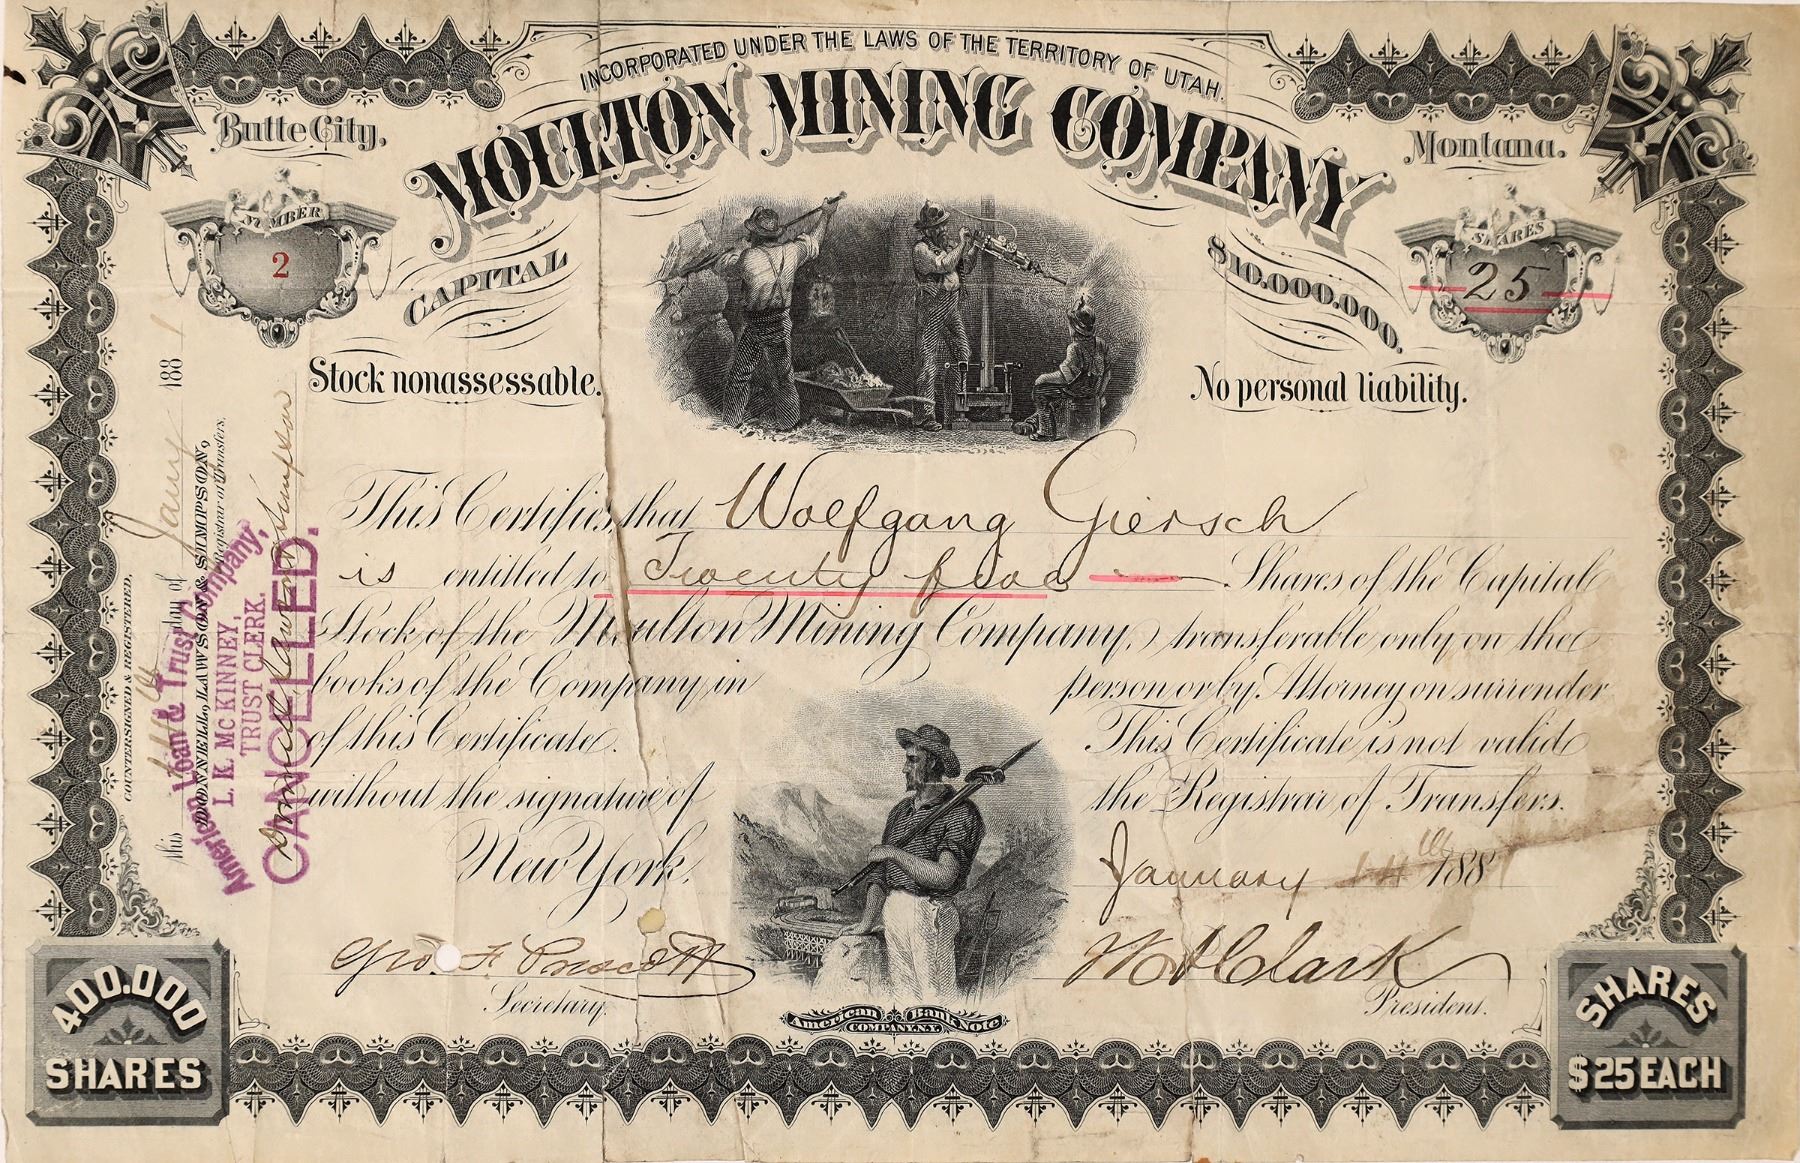 INCORPORATED UNDER THE LAWS OF THE TERRITORY OF UTAH.
Butte City, Montana.
MOULTON MINING COMPANY
NUMBER
2
SHARES
25
CAPITAL $10.000.000.
Stock nonassessable. No personal liability.
This Certifies that Wolfgang Giersch
is entitled to Twenty five Shares of the Capital
Stock of the Moulton Mining Company, transferable only on the
books of the Company in person or by Attorney on surrender
of this Certificate. This Certificate is not valid
without the signature of the Registrar of Transfers.
New York, January 14th 1881
Geo. F. Prescott
Secretary.
W A Clark
President.
American Bank Note
COMPANY.N.Y.
400.000
SHARES
SHARES
$25 EACH
COUNTERSIGNED & REGISTERED,
This day of Jany 1881
DONNELL, LAWSON & SIMPSON,
Registrar of Transfers.
Donnell Lawson & Simpson
American Loan & Trust Company,
L. K. McKINNEY,
TRUST CLERK.
CANCELLED.